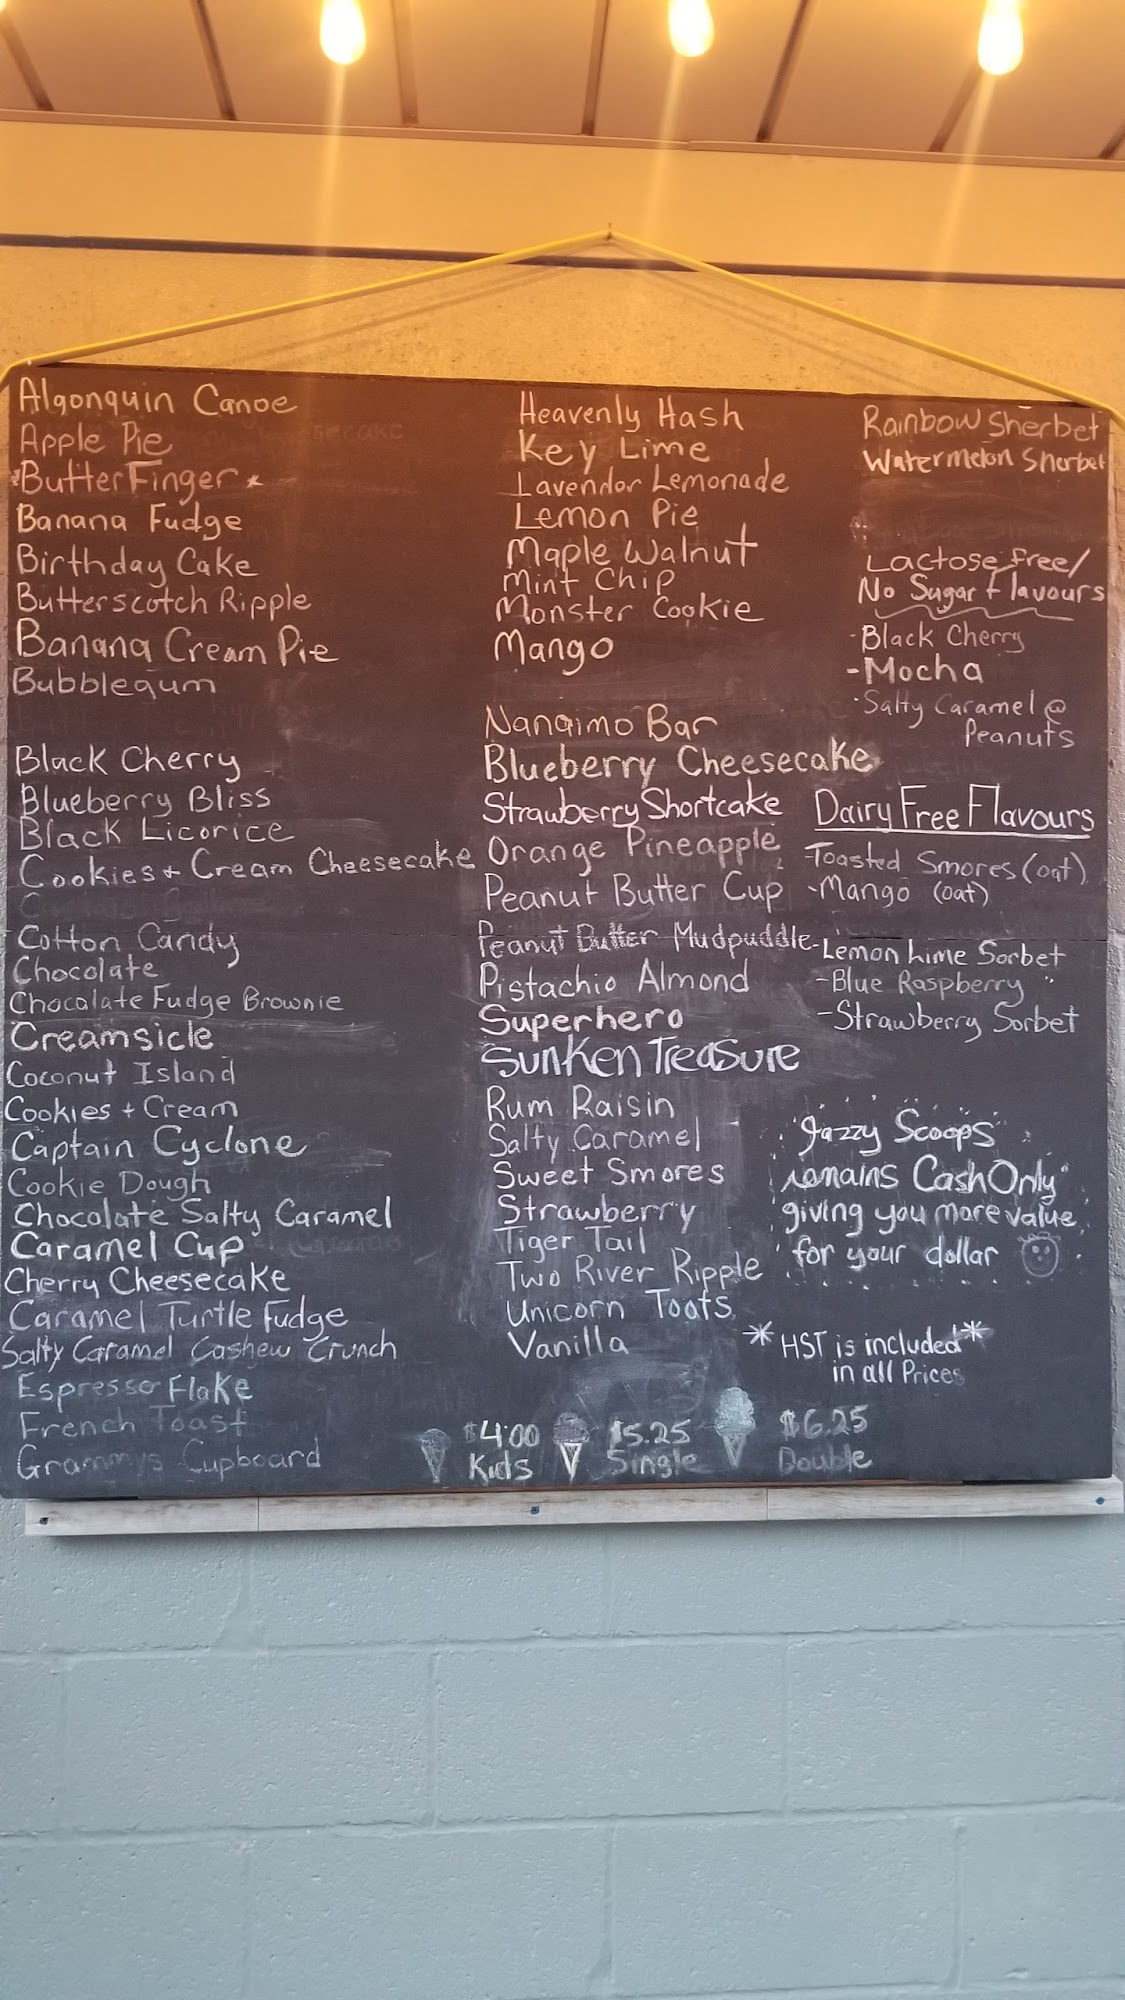 Algonquin Canoe
Apple Pie
*ButterFinger*
Banana Fudge
Birthday Cake
Butterscotch Ripple
Banana Cream Pie
Bubblegum
Black Cherry
Blueberry Bliss
Black Licorice
Cookies + Cream Cheesecake
Cotton Candy
Chocolate
Chocolate Fudge Brownie
Creamsicle
Coconut Island
Cookies + Cream
Captain Cyclone
Cookie Dough
Chocolate Salty Caramel
Caramel Cup
Cherry Cheesecake
Caramel Turtle Fudge
Salty Caramel Cashew Crunch
Espresso Flake
French Toast
Grammys Cupboard
Heavenly Hash
Key Lime
Lavendor Lemonade
Lemon Pie
Maple Walnut
Mint Chip
Monster Cookie
Mango
Nanaimo Bar
Blueberry Cheesecake
Strawberry Shortcake
Orange Pineapple
Peanut Butter Cup
Peanut Butter Mudpuddle
Pistachio Almond
Superhero
Sunken Treasure
Rum Raisin
Salty Caramel
Sweet Smores
Strawberry
Tiger Tail
Two River Ripple
Unicorn Toots
Vanilla
Rainbow Sherbet
Watermelon Sherbet
Lactose free/
No Sugar Flavours
-Black Cherry
-Mocha
-Salty Caramel @
Peanuts
Dairy Free Flavours
-Toasted Smores (oat)
-Mango (oat)
-Lemon Lime Sorbet
-Blue Raspberry "
-Strawberry Sorbet
Jazzy Scoops
remains Cash Only
giving you more value
for your dollar
*HST is included*
in all Prices
$4.00 $5.25 $6.25
Kids Single Double